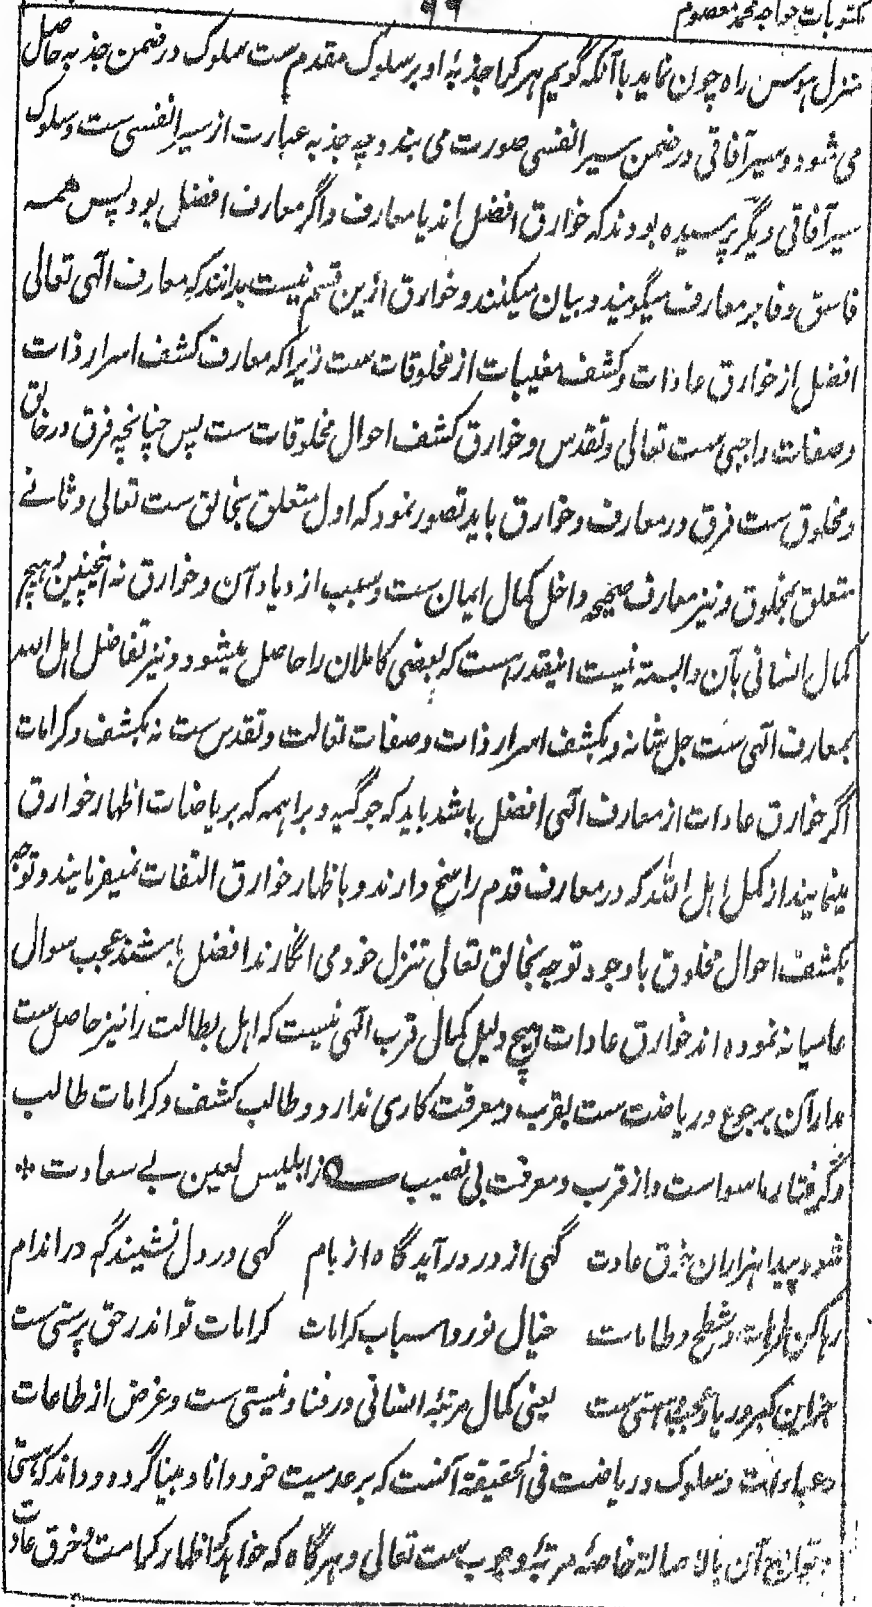 ۹۹
مکتوبات خواجه محمد معصوم
منزل هوس راه چون نماید با آنکه گوییم هر کرا جذبۀ او بر سلوک مقدم ست سلوک در ضمن جذبه حاصل
می شود و سیر آفاقی در ضمن سیر انفسی صورت می بندد چه جذبه عبارت از سیر انفسی ست و سلوک
سیر آفاقی دیگر پرسیده بودند که خوارق افضل اند یا معارف و اگر معارف افضل بود پس همه
فاسق و فاجر معارف میگویند و بیان میکنند و خوارق ازین قسم نیست بدانند که معارف الٓهی تعالی
افضل از خوارق عادات و کشف مغیبات از مخلوقات ست زیرا که معارف کشف اسرار ذات
و صفات واجبی ست تعالی و تقدس و خوارق کشف احوال مخلوقات ست پس چنانچه فرق در خالق
و مخلوق ست فرق در معارف و خوارق باید تصور نمود که اول متعلق بخالق ست تعالی و ثانے
متعلق بمخلوق و نیز معارف صحیحه داخل کمال ایمان ست و سبب ازدیاد آن و خوارق نه اینچنین و هیچ
کمال انسانی بآن وابسته نیست اینقدر هست که بعضی کاملان را حاصل میشود و نیز تفاضل اهل الله
بمعارف الٓهی ست جل شانه و بکشف اسرار ذات و صفات تعالت و تقدس ست نه بکشف و کرامات
اگر خوارق عادات از معارف الٓهی افضل باشد باید که جوگیه و براهمه که بریاضات اظهار خوارق
مینمایند از کمل اهل الله که در معارف قدم راسخ دارند و باظهار خوارق التفات نمیفرمایند و توجه
بکشف احوال مخلوق با وجود توجه بخالق تعالی تنزل خود می انگارند افضل باشند عجب سوال
عامیانه نموده اند خوارق عادات هیچ دلیل کمال قرب الٓهی نیست که اهل بطالت را نیز حاصل ست
مدار آن بر جوع و ریاضت ست بقرب و معرفت کاری ندارد و طالب کشف و کرامات طالب
و گرفتار ماسواست و از قرب و معرفت بی نصیب ؎ ز ابلیس لعین بے سعادت *
شود پیدا هزاران خرق عادت گهی از در در آید گاه از بام گهی در دل نشیند گه در اندام
رها کن ترهات و شطح و طامات خیال نور و اسباب کرامات کرامات تو اندر حق پرستی ست
جز این کبر و ریا و عجب و هستی ست یعنی کمال مرتبۀ انسانی در فنا و نیستی ست و غرض از طاعات
و عبادات و سلوک و ریاضت فی الحقیقة آنست که بر عدمیت خود دانا و بینا گردد و داند که هستی
و توابع آن بالاصالة خاصۀ مرتبۀ وجوب ست تعالی و هرگاه که خواهد که اظهار کرامت و خرق عادات